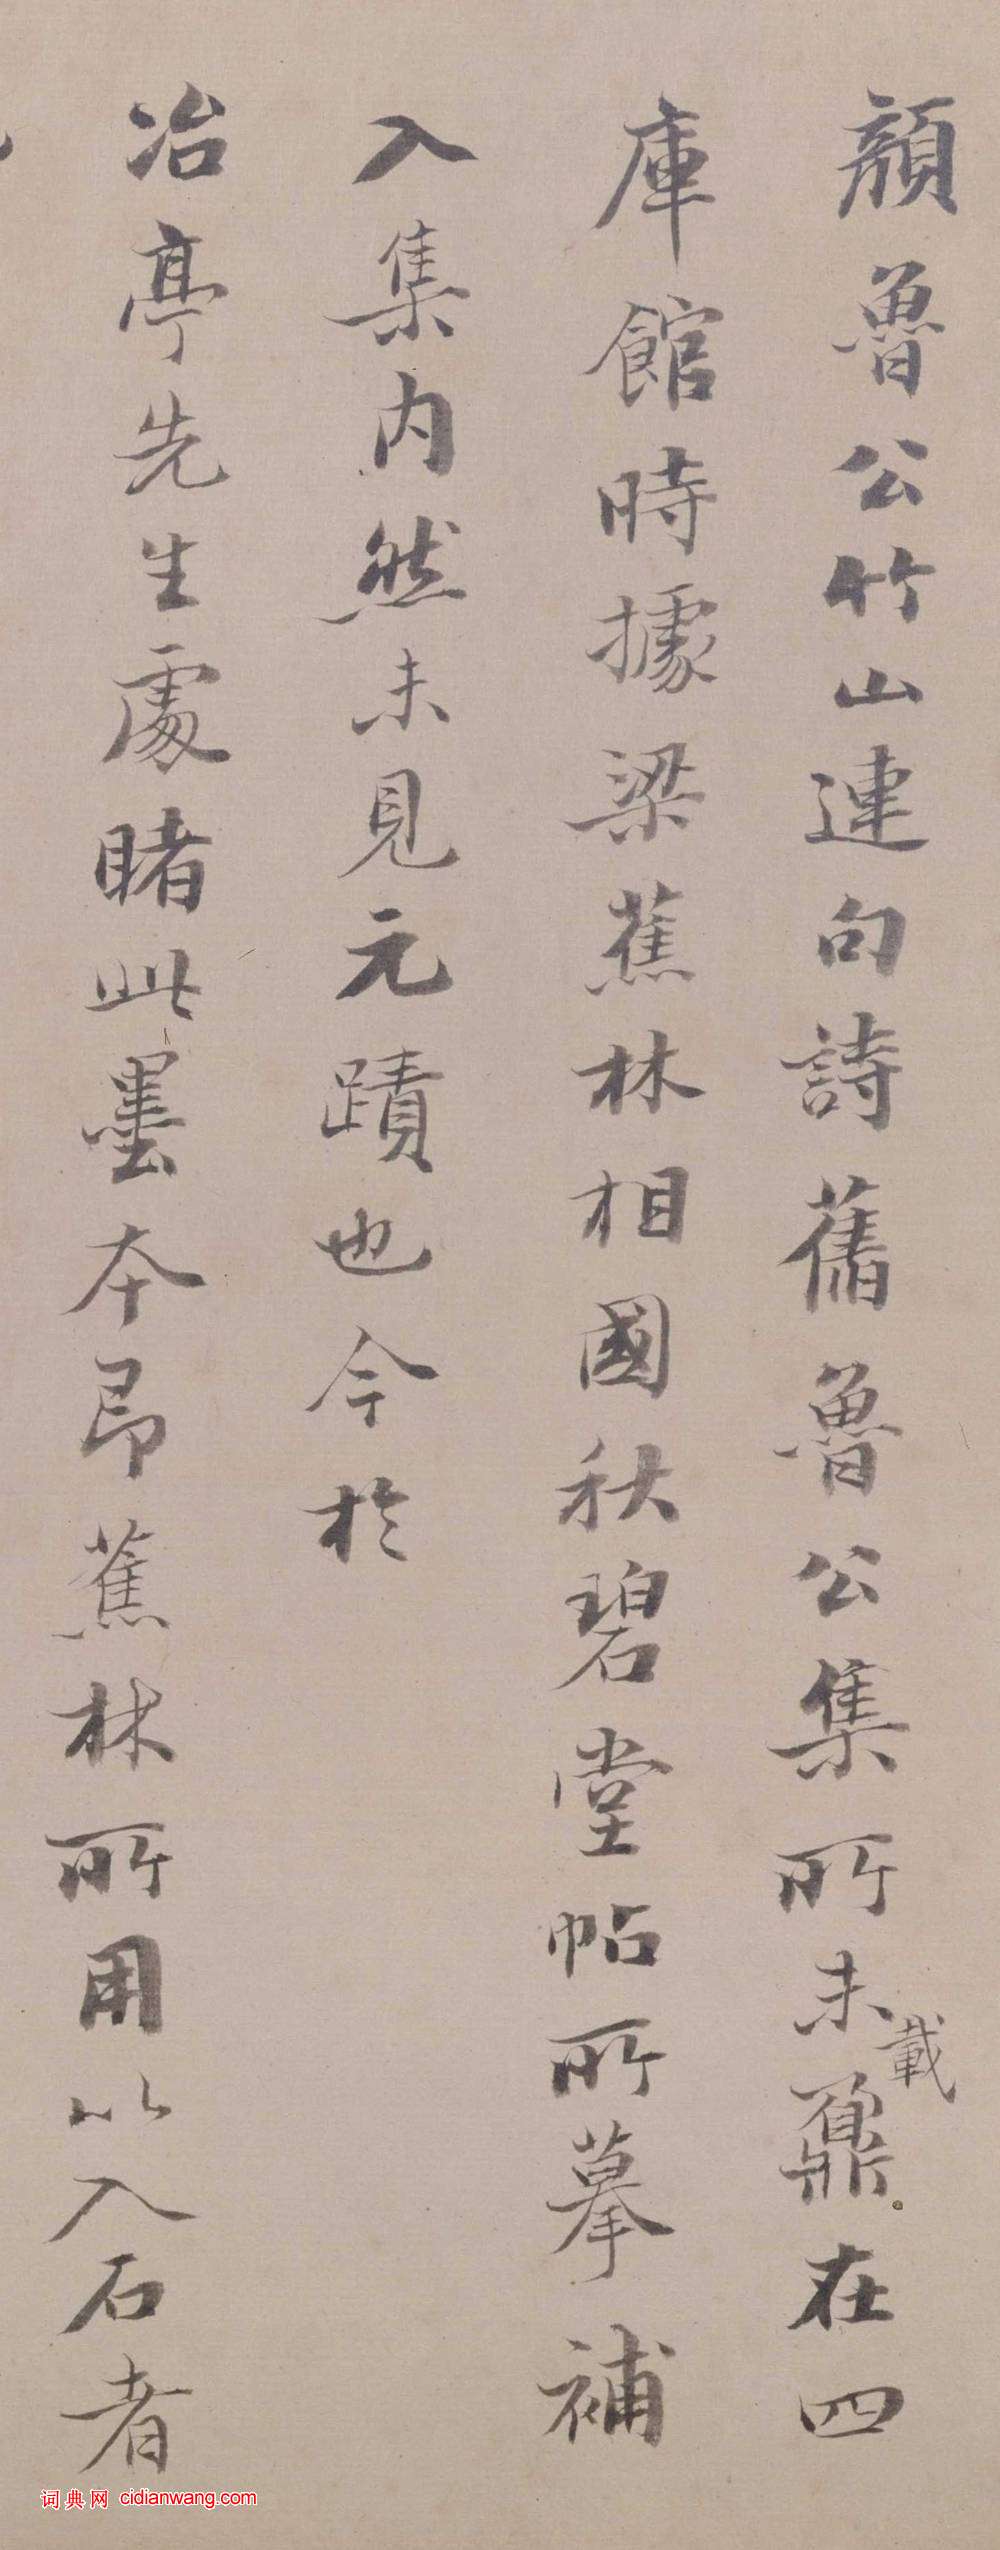 顏魯公竹山連句詩舊魯公集所未載鼐在四
庫館時據梁蕉林相國秋碧堂帖所摹補
入集内然未見元蹟也今於
冶亭先生處睹此墨本即蕉林所用以入石者
词典网 cidianwang.com